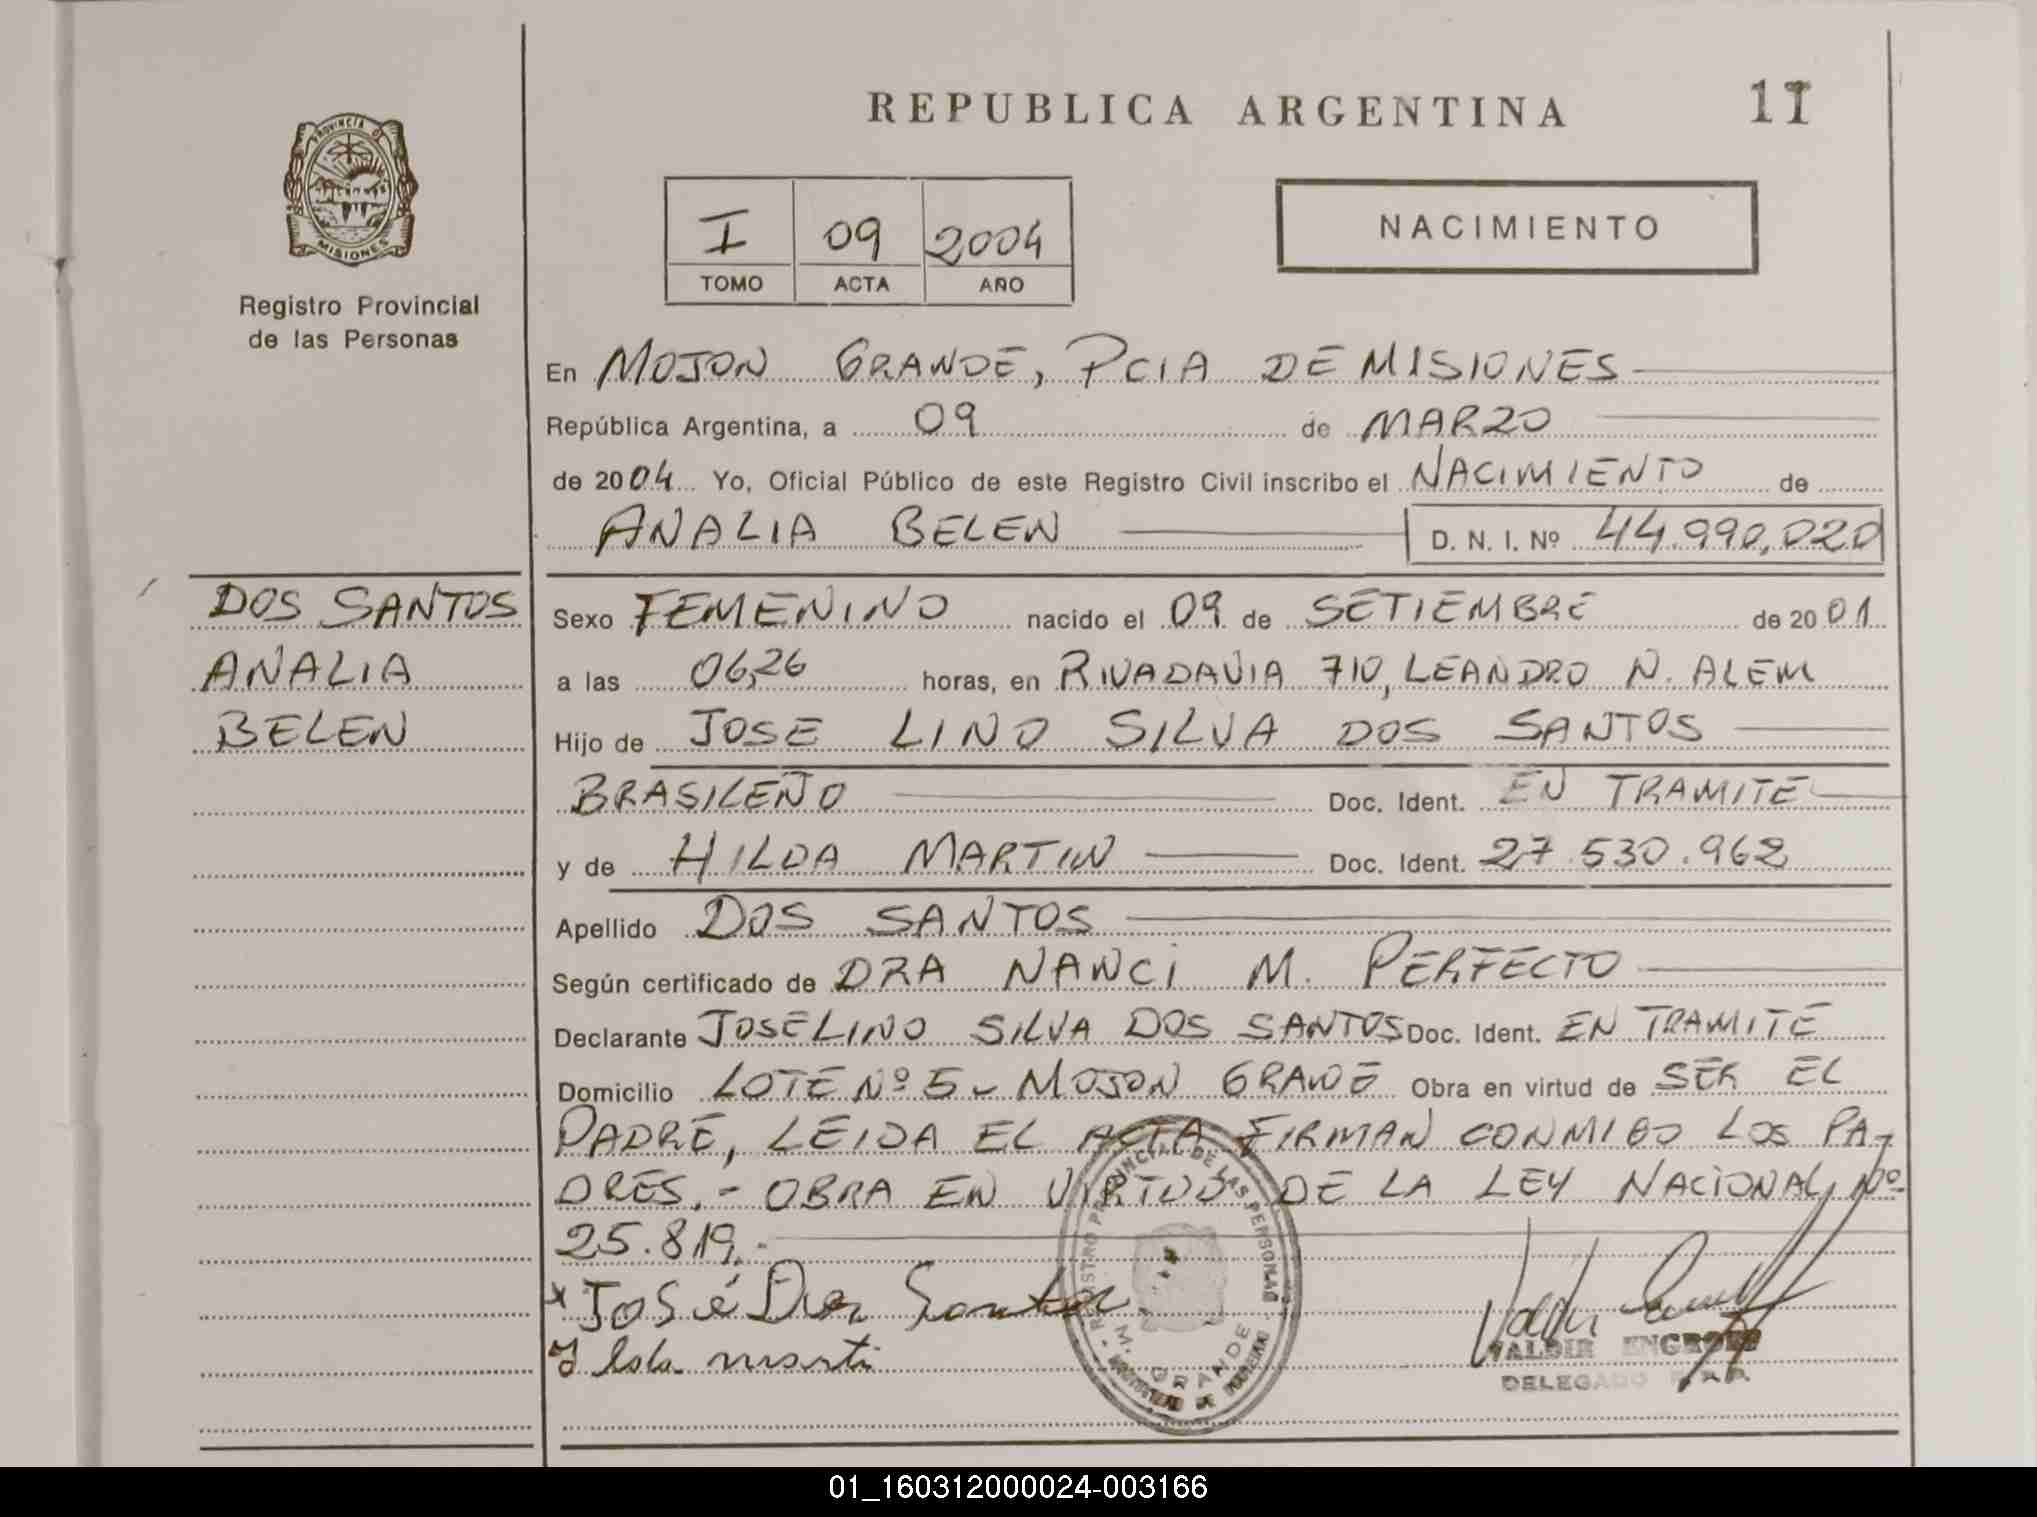 REPUBLICA ARGENTINA
11
PROVINCIA DE
MISIONES
Registro Provincial
de las Personas
I 09 2004
TOMO ACTA AÑO
NACIMIENTO
En MOJON GRANDE, PCIA DE MISIONES
República Argentina, a 09 de MARZO
de 2004 Yo, Oficial Público de este Registro Civil inscribo el NACIMIENTO de
ANALIA BELEN D. N. I. Nº 44.990.020
DOS SANTOS
ANALIA
BELEN
Sexo FEMENINO nacido el 09 de SETIEMBRE de 2001
a las 06,26 horas, en RIVADAVIA 710, LEANDRO N. ALEM
Hijo de JOSE LINO SILVA DOS SANTOS
BRASILEÑO Doc. Ident. EN TRAMITE
y de HILDA MARTIN Doc. Ident. 27.530.962
Apellido DOS SANTOS
Según certificado de DRA NANCI M. PERFECTO
Declarante JOSE LINO SILVA DOS SANTOS Doc. Ident. EN TRAMITE
Domicilio LOTE Nº 5 - MOJON GRANDE Obra en virtud de SER EL
PADRE, LEIDA EL ACTA FIRMAN CONMIGO LOS PA-
DRES.- OBRA EN VIRTUD DE LA LEY NACIONAL Nº
25.819.-
José Dos Santos
REGISTRO PROVINCIAL DE LAS PERSONAS
M. GRANDE
VALDIR ENGROFF
DELEGADO R.P.P.
01_160312000024-003166